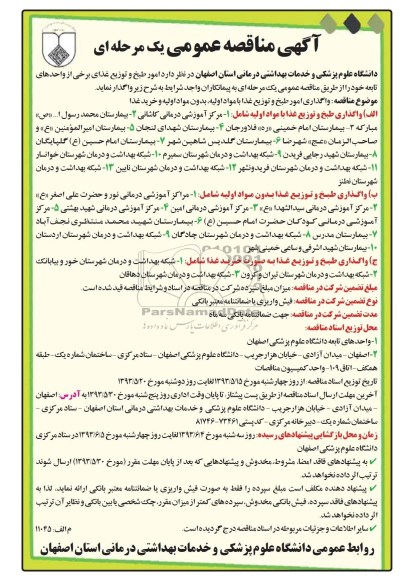 آگهی مناقصه عمومی یک مرحله ای
دانشگاه علوم پزشکی و خدمات بهداشتی درمانی استان اصفهان در نظر دارد امور طبخ و توزیع غذای برخی از واحدهای
تابعه خود را از طریق مناقصه عمومی یک مرحله‌ای به پیمانکاران واجد شرایط به شرح زیر واگذار نماید.
موضوع مناقصه: واگذاری امور طبخ و توزیع غذا با مواد اولیه، بدون مواد اولیه و خرید غذا
الف) واگذاری طبخ و توزیع غذا با مواد اولیه شامل: ۱- مرکز آموزشی درمانی کاشانی ۲- بیمارستان محمد رسول ا... «ص»
مبارکه ۳- بیمارستان امام خمینی «ره» فلاورجان ۴- بیمارستان شهدای لنجان ۵- بیمارستان امیرالمؤمنین «ع» و
صاحب الزمان «عج» شهرضا ۶- بیمارستان گلدیس شاهین شهر ۷- بیمارستان امام حسین (ع) گلپایگان
۸- بیمارستان شهید رجایی فریدن ۹- شبکه بهداشت و درمان شهرستان سمیرم ۱۰- شبکه بهداشت و درمان شهرستان خوانسار
۱۱- شبکه بهداشت و درمان شهرستان فریدونشهر ۱۲- شبکه بهداشت و درمان شهرستان نایین ۱۳- شبکه بهداشت و درمان
شهرستان نطنز
ب) واگذاری طبخ و توزیع غذا بدون مواد اولیه شامل: ۱- مراکز آموزشی درمانی نور و حضرت علی اصغر «ع»
۲- مرکز آموزشی درمانی سیدالشهدا «ع» ۳- مرکز آموزشی درمانی امین ۴- مرکز آموزشی درمانی شهید بهشتی ۵- مرکز
آموزشی درمانی کودکان حضرت امام حسین (ع) ۶- بیمارستان شهید محمد منتظری نجف آباد
۷- بیمارستان مدرس ۸- شبکه بهداشت و درمان شهرستان چادگان ۹- شبکه بهداشت و درمان شهرستان اردستان
۱۰- بیمارستان شهید اشرفی و ساعی خمینی شهر
ج) واگذاری طبخ و توزیع غذا به صورت خرید غذا شامل: ۱- شبکه بهداشت و درمان شهرستان خور و بیابانک
۲- شبکه بهداشت و درمان شهرستان تیران و کرون ۳- شبکه بهداشت و درمان شهرستان دهاقان
مبلغ تضمین شرکت در مناقصه: میزان مبلغ سپرده شرکت در مناقصه در اسناد و شرایط مناقصه قید شده است.
نوع تضمین شرکت در مناقصه: فیش واریزی یا ضمانتنامه معتبر بانکی
مدت تضمین شرکت در مناقصه: جهت ضمانتنامه بانکی سه ماه
محل توزیع اسناد مناقصه:
۱- واحد های تابعه دانشگاه علوم پزشکی اصفهان
۲- اصفهان - میدان آزادی - خیابان هزارجریب - دانشگاه علوم پزشکی اصفهان - ستاد مرکزی - ساختمان شماره یک - طبقه
همکف - اتاق ۱۰۹ - واحد کمیسیون مناقصات
تاریخ توزیع اسناد مناقصه: از روز چهارشنبه مورخ ۱۳۹۳/۵/۱۵ لغایت روز دوشنبه مورخ ۱۳۹۳/۵/۲۰
آخرین مهلت ارسال اسناد مناقصه از طریق پست پیشتاز: تا پایان وقت اداری روز پنج شنبه مورخ ۱۳۹۳/۵/۳۰ به آدرس: اصفهان
- میدان آزادی - خیابان هزارجریب - دانشگاه علوم پزشکی و خدمات بهداشتی درمانی استان اصفهان - ستاد مرکزی -
ساختمان شماره یک - دبیرخانه مرکزی - کدپستی ۷۳۴۶۱-۸۱۷۴۶
زمان و محل بازگشایی پیشنهادهای رسیده: روز سه شنبه مورخ ۱۳۹۳/۶/۴ لغایت روز چهارشنبه مورخ ۱۳۹۳/۶/۵ در ستاد مرکزی
دانشگاه علوم پزشکی اصفهان
✔ به پیشنهادهای فاقد امضا، مشروط، مخدوش و پیشنهادهایی که بعد از پایان مهلت مقرر (مورخ ۱۳۹۳/۵/۳۰) ارسال شوند
ترتیب اثر داده نخواهد شد.
✔ پیشنهاد دهنده مکلف است مبلغ سپرده را فقط به صورت فیش واریزی یا ضمانتنامه معتبر بانکی ارائه نماید، لذا به
پیشنهادهای فاقد سپرده، فیش بانکی مخدوش، سپرده های کمتر از میزان مقرر، چک شخصی یا بین بانکی و نظایر آن ترتیب
اثر داده نخواهد شد.
✔ سایر اطلاعات و جزئیات مربوطه در اسناد مناقصه درج گردیده است.
م الف: ۱۱۰۴۵
روابط عمومی دانشگاه علوم پزشکی و خدمات بهداشتی درمانی استان اصفهان